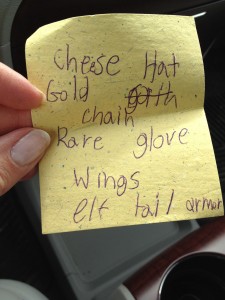 Cheese Hat
Gold
chain
Rare glove
Wings
elf tail armar